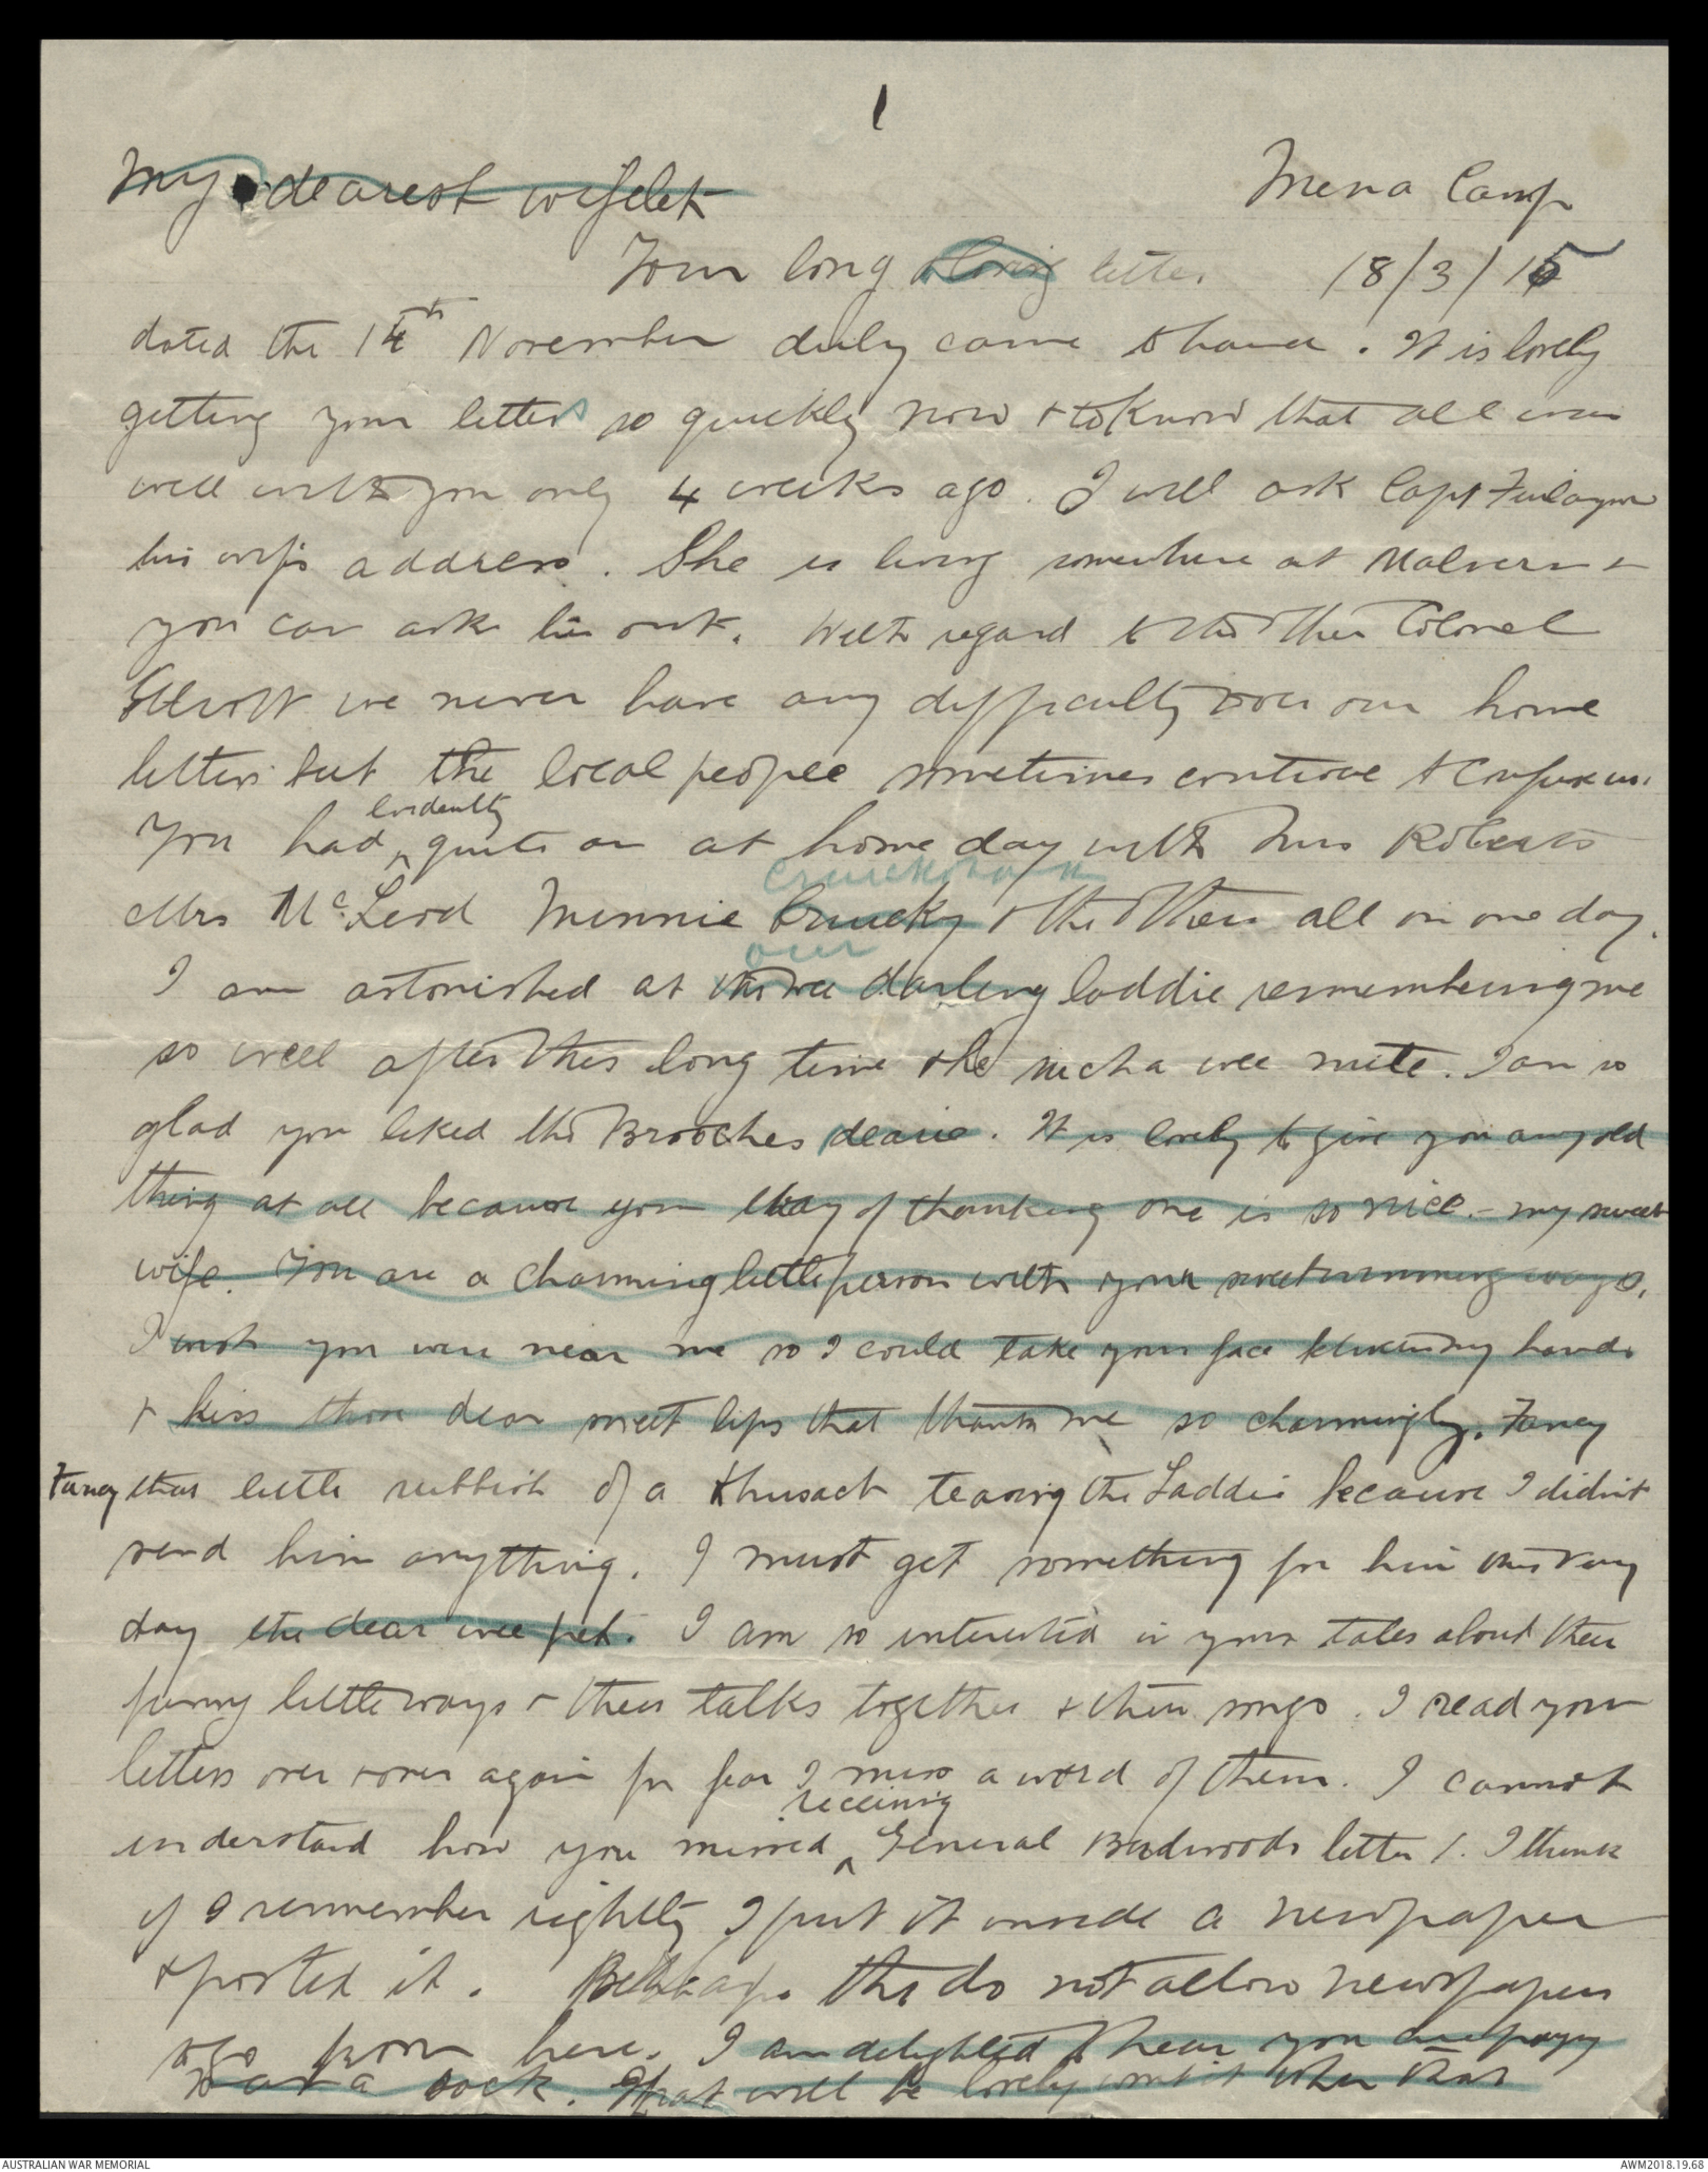 1
My dearest wifelet
Mena Camp
Your long & loving letter
18/3/15
dated the 14th November duly came to hand. It is lovely
getting your letters so quickly now & to know that all was
well with you only 4 weeks ago. I will ask Capt Finlayson
his wifes address. She is living somewhere at Malvern &
you can ask her out. With regard to the other Colonel
Elliott we never have any difficulty over our home
letters but the local people sometimes contrive to confuse us.
You had evidently quite an at home day with Mrs Roberts
Mrs McLeod Minnie Crucky Cruickshank & the others all on one day.
I am astonished at the wee darling our laddie remembering me
so well after this long time & he such a wee mite. I am so
glad you liked the Brooches dearie. It is lovely to give you any old
thing at all because your way of thanking one is so nice. - my sweet
wife. You are a charming little person with your sweet winning ways.
I wish you were near me so I could take your face between my hands
& kiss those dear sweet lips that thank me so charmingly. Fancy
Fancy that little rubbish of a teasing the Laddie because I didn't
send him anything. I must get something for him this very
day the dear wee pet. I am so interested in your tales about their
funny little ways & their talks together & their songs. I read your
letters over & over again for fear I miss a word of them. I cannot
understand how you missed receiving General Birdwoods letter /. I think
if I remember rightly I put it inside a newspaper
& posted it. Perhaps the do not allow newspapers
to go from here. I am delighted to hear you are
a sock. That will be lovely wont it when that